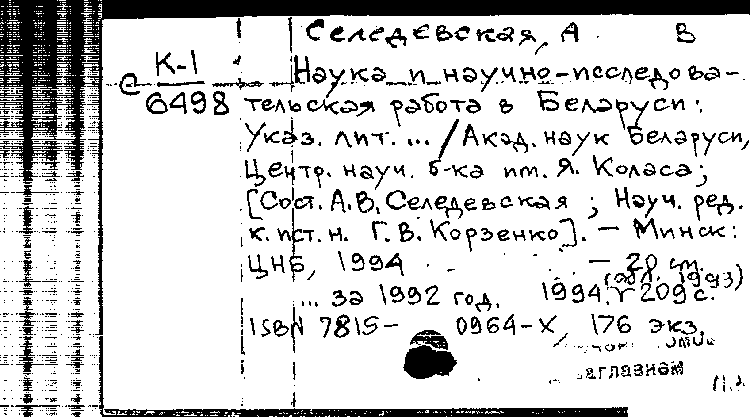 Селедевская, А В
С К-1
6498
Наука и научно-исследова-
тельская работа в Беларуси:
Указ. лит. ... / Акад. наук Беларуси,
Центр. науч. б-ка им. Я. Коласа;
[Сост. А.В. Селедевская ; Науч. ред.
к. ист. н. Г. В. Корзенко]. — Минск:
ЦНБ, 1994 — 20 см.
(обл. 1993)
... за 1992 год. 1994. 209 с.
ISBN 7815- 0964-Х, 176 экз.
заглавием